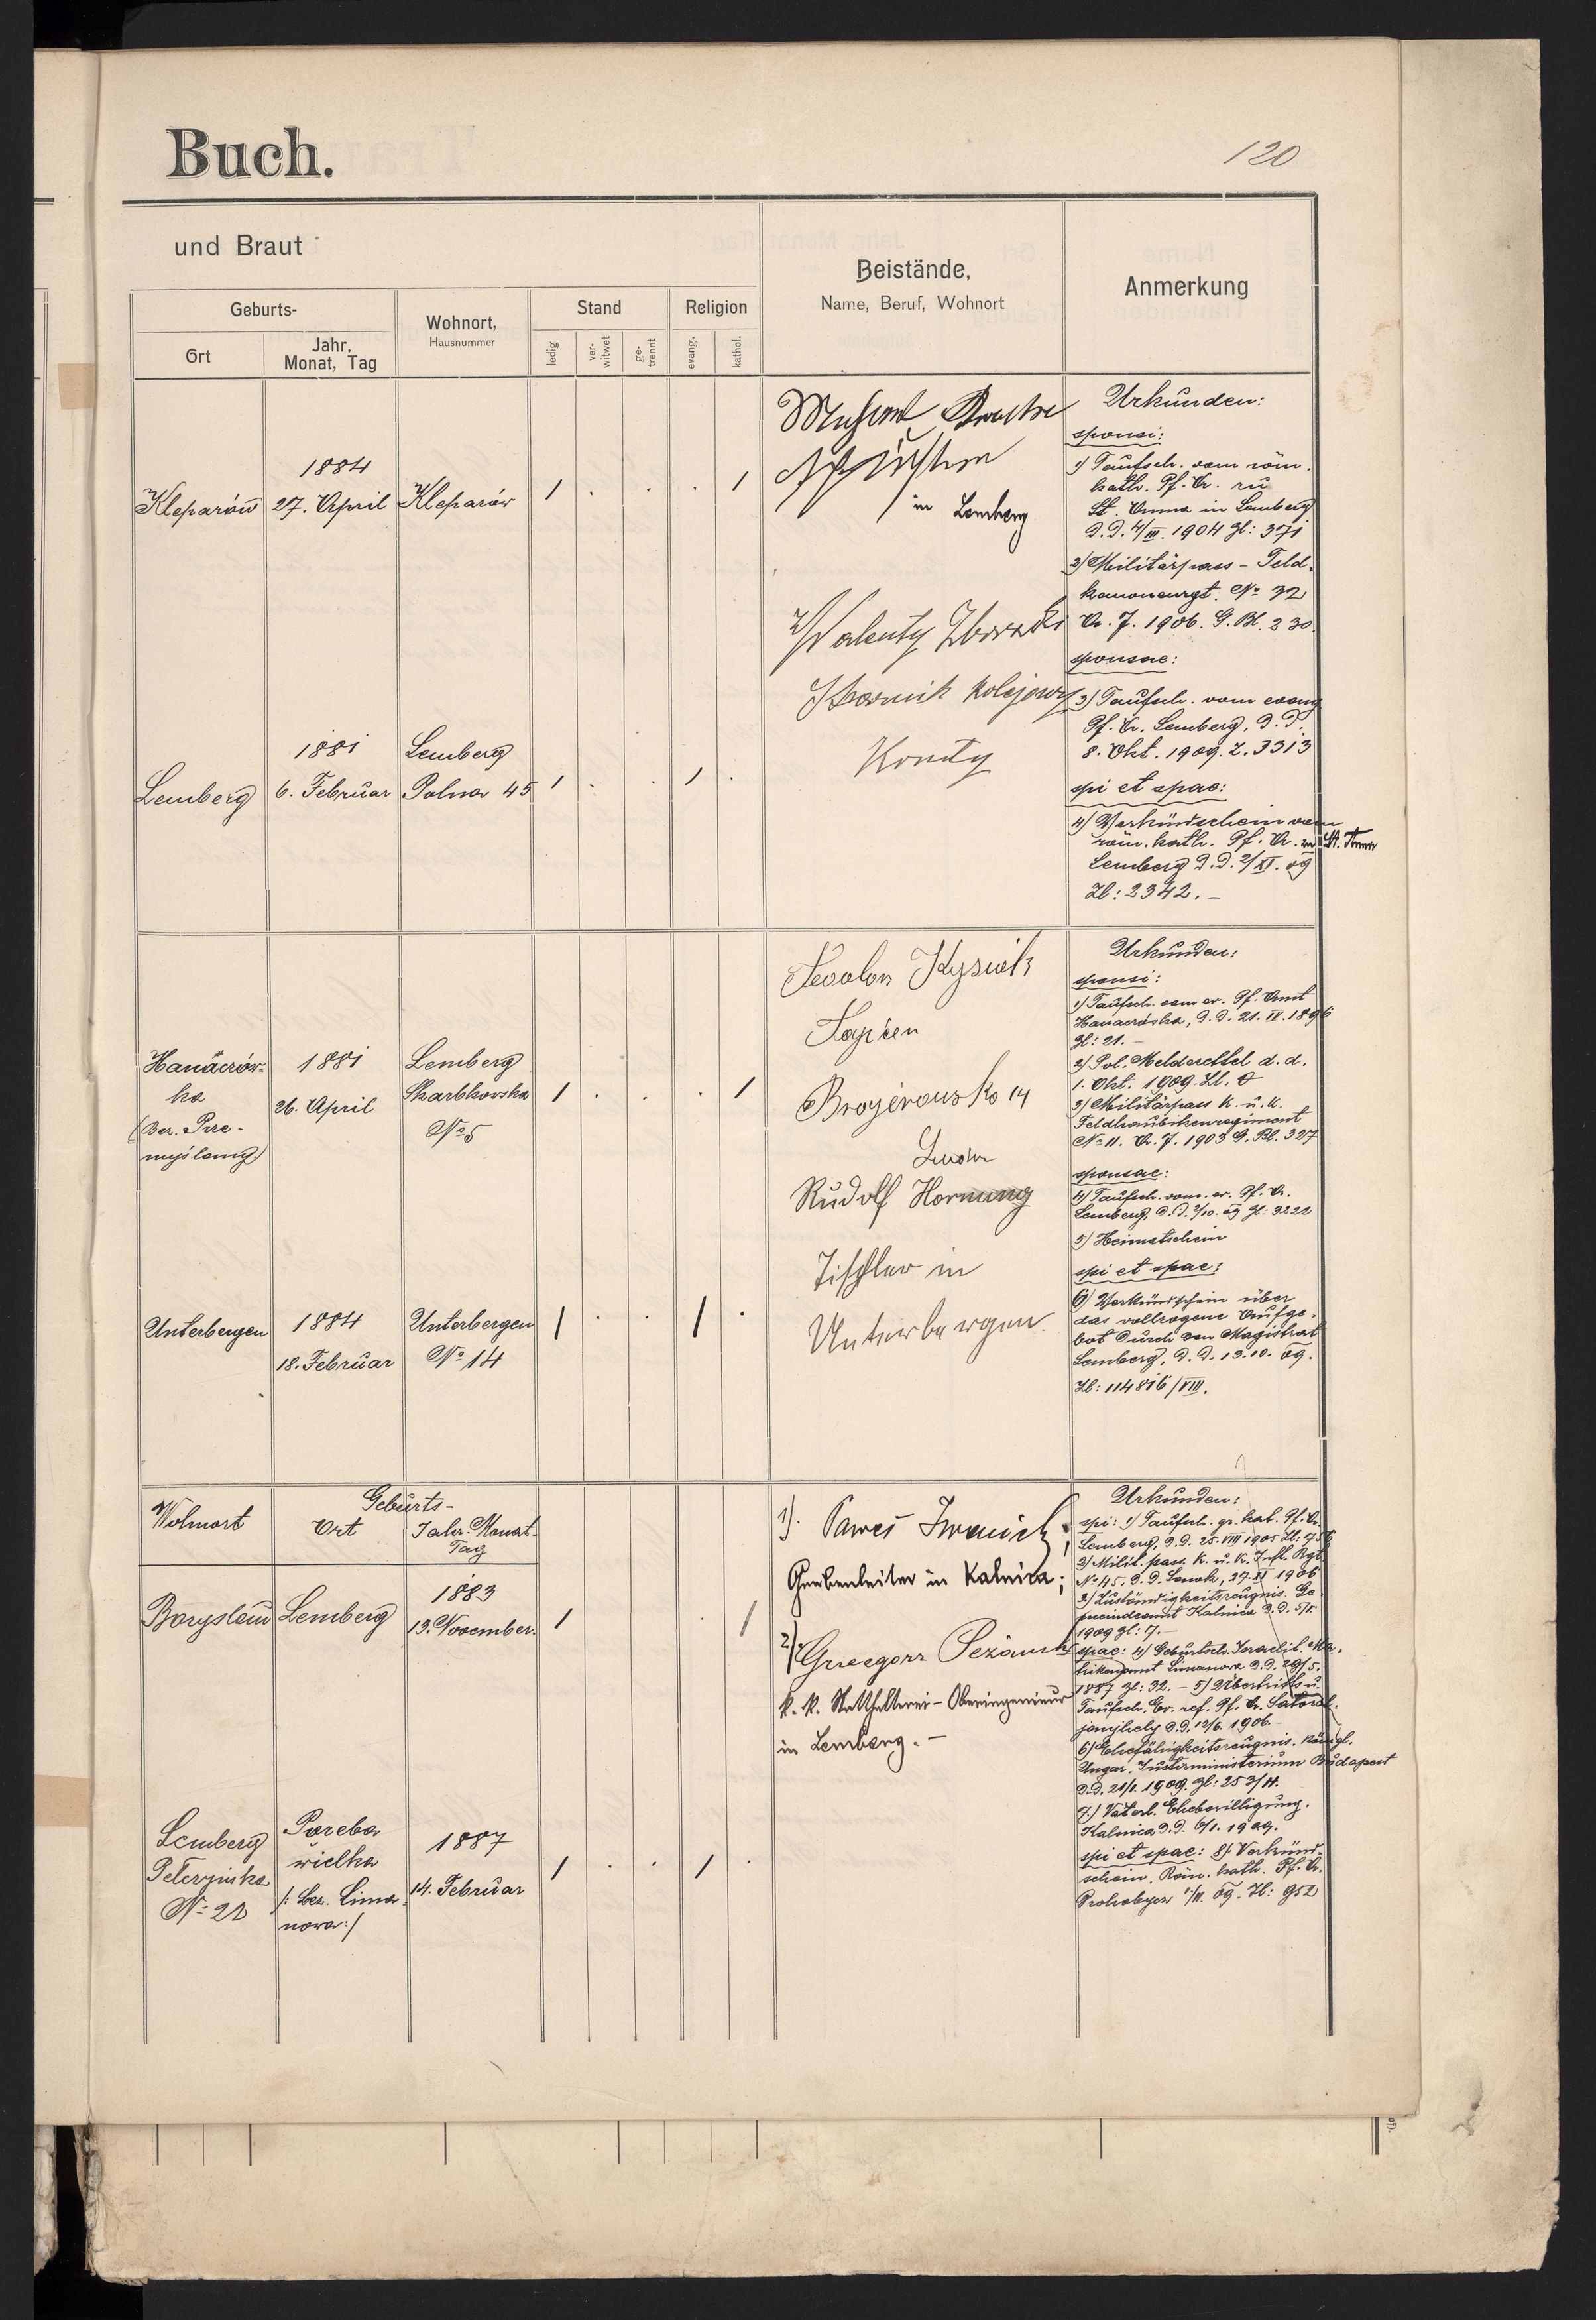 Buch.
120
und Braut
Geburts-
Ort
Jahr, Monat, Tag
Wohnort,
Hausnummer
Stand
ledig
ver-witwet
ge-trennt
Religion
evang.
kathol.
Beistände,
Name, Beruf, Wohnort
Anmerkung
Kleparów
1884
27. April
Kleparów
1 . . . 1
in Lemberg
2)
Walenty
kolejowy
Lemberg
1881
6. Februar
Lemberg
Polna 45
1 . . 1 .
Urkunden:
sponsi:
1) Taufsch. vom röm.
kath. Pf. A. zu
St. Anna in Lemberg
D.D. 4/III. 1904 Zl: 371
2) Militärpass - Feld-
kanonenrgt. No 32
A. J. 1906. G. Bl. 230.
sponsae:
3) Taufsch. vom evang
Pf. A. Lemberg, D.D.
8. Okt. 1909. Z. 3313
spi et spae:
4) Verkündschein vom
röm. kath. Pf. A. zu St. Anna
Lemberg D.D. 2/XI. 09
Zl: 2342. -
Hanaczów-
ka
(Bez. Prze-
myślany)
1881
26. April
Lemberg
Skarbkovska
No 5
1 . . . 1
14
Lwów
Rudolf Hornung
Tischler in
Unterbergen.
Unterbergen
1884
18. Februar
Unterbergen
No 14
1 . . 1 .
Urkunden:
sponsi:
1) Taufsch. vom ev. Pf. Amt
Hanaczówka, D.D. 21. IV. 1896
Zl: 21. -
2) Pol. Meldezettel d. d.
1. Okt. 1909. Zl. 0
3) Militärpass K. u. K.
Feldhaubitzenregiment
No 11. A. J. 1903 G. Bl. 327
sponsae:
4) Taufsch. vom. ev. Pf. A.
Lemberg, D.D. 2/10. 09 Zl: 3222
5) Heimatschein
spi et spae:
6) Verkündschein über
das vollzogene Aufge-
bot durch den Magistrat
Lemberg, D.D. 19.10. 09.
Zl: 114816/VIII.
Wohnort
Geburts-
Ort
Jahr. Monat.
Tag
Boryslau
Lemberg
1883
13. November.
1
1
1).
Grubenleiter in Kalnica;
2)
Grzegorz
k. k. Statthalterei-Oberingenieur
in Lemberg. -
Lemberg
Peterzinka
No 22
Poreba
wielka
/: Bez. Lima-
nowa:/
1887
14. Februar
1 . . 1 .
Urkunden:
spi: 1) Taufsch. gr. kat. Pf. A.
Lemberg, D.D. 25. VIII 1905 Zl: 756
2) Milit. pass. K. u. K. Inft. Rgt.
No 45. D.D. Sanok, 27. XI 1906
3) Zuständigkeitszeugnis. Ge-
meindeamt Kalnica D.D. 5/1.
1909 Zl: 7. -
spae: 4) Geburtsch. Israelit. Ma-
trikenamt Limanova D.D. 29/5.
1887 Zl: 32. - 5) Übertritts u.
Taufsch. Ev. ref. Pf. A. Satoral-
jaujhely D.D. 12/6. 1906. -
6) Ehefähigkeitszeugnis. königl.
Ungar. Justizministerium Budapest
D.D. 21/1. 1909. Zl: 253/H.
7.) Väterl. Ehebewilligung.
Kalnica D.D. 6/1. 1909.
spi et spae: 8) Verkünd-
schein. Röm. kath. Pf. A.
1/11. 09. Zl: 952